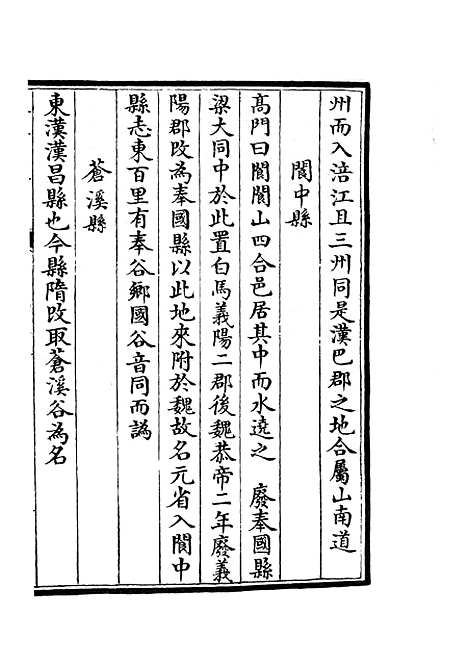 州而入涪江且三州同是漢巴郡之地合屬山南道
閬中縣
高門曰閬閬山四合邑居其中而水遶之　廢奉國縣
梁大同中於此置白馬義陽二郡後魏恭帝二年廢義
陽郡改為奉國縣以此地來附於魏故名元省入閬中
縣志東百里有奉谷鄉國谷音同而譌
蒼溪縣
東漢漢昌縣也今縣隋改取蒼溪谷為名